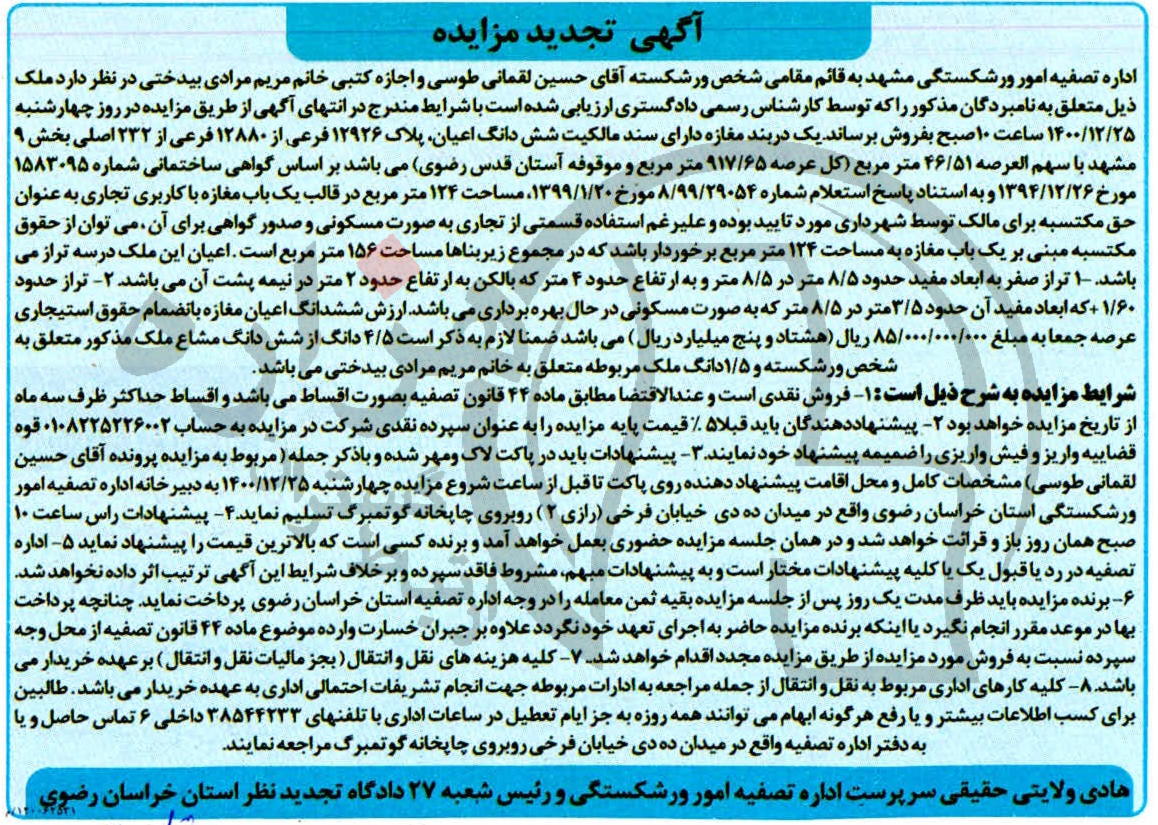 آگهی تجدید مزایده
اداره تصفیه امور ورشکستگی مشهد به قائم مقامی شخص ورشکسته آقای حسین لقمانی طوسی و اجازه کتبی خانم مریم مرادی بیدختی در نظر دارد ملک
ذیل متعلق به نامبردگان مذکور را که توسط کارشناس رسمی دادگستری ارزیابی شده است با شرایط مندرج در انتهای آگهی از طریق مزایده در روز چهارشنبه
۱۴۰۰/۱۲/۲۵ ساعت ۱۰صبح بفروش برساند.یک دربند مغازه دارای سند مالکیت شش دانگ اعیان، پلاک ۱۲۹۲۶ فرعی از ۱۲۸۸۰ فرعی از ۲۳۲ اصلی بخش ۹
مشهد با سهم العرصه ۴۶/۵۱ متر مربع (کل عرصه ۹۱۷/۶۵ متر مربع و موقوفه آستان قدس رضوی) می باشد بر اساس گواهی ساختمانی شماره ۱۵۸۳۰۹۵
مورخ ۱۳۹۴/۱۲/۲۶ و به استناد پاسخ استعلام شماره ۸/۹۹/۲۹۰۵۴ مورخ ۱۳۹۹/۱/۲۰، مساحت ۱۲۴ متر مربع در قالب یک باب مغازه با کاربری تجاری به عنوان
حق مکتسبه برای مالک توسط شهرداری مورد تایید بوده و علیرغم استفاده قسمتی از تجاری به صورت مسکونی و صدور گواهی برای آن ، می توان از حقوق
مکتسبه مبنی بر یک باب مغازه به مساحت ۱۲۴ متر مربع برخوردار باشد که در مجموع زیربناها مساحت ۱۵۶ متر مربع است . اعیان این ملک در سه تراز می
باشد. -۱ تراز صفر به ابعاد مفید حدود ۸/۵ متر در ۸/۵ متر و به ارتفاع حدود ۴ متر که بالکن به ارتفاع حدود ۲ متر در نیمه پشت آن می باشد. ۲- تراز حدود
۱/۶۰ +که ابعاد مفید آن حدود ۳/۵متر در ۸/۵ متر که به صورت مسکونی در حال بهره برداری می باشد. ارزش ششدانگ اعیان مغازه بانضمام حقوق استیجاری
عرصه جمعا به مبلغ ۸۵/۰۰۰/۰۰۰/۰۰۰ ریال (هشتاد و پنج میلیارد ریال) می باشد ضمنا لازم به ذکر است ۴/۵ دانگ از شش دانگ مشاع ملک مذکور متعلق به
شخص ورشکسته و ۱/۵دانگ ملک مربوطه متعلق به خانم مریم مرادی بیدختی می باشد .
شرایط مزایده به شرح ذیل است : ۱- فروش نقدی است و عندالاقتضا مطابق ماده ۴۴ قانون تصفیه بصورت اقساط می باشد و اقساط حداکثر ظرف سه ماه
از تاریخ مزایده خواهد بود ۲- پیشنهاددهندگان باید قبلا۵ ٪ قیمت پایه مزایده را به عنوان سپرده نقدی شرکت در مزایده به حساب ۰۱۰۸۲۲۵۲۲۶۰۰۲ قوه
قضاییه واریز و فیش واریزی را ضمیمه پیشنهاد خود نمایند.۳- پیشنهادات باید در پاکت لاک ومهر شده و باذکر جمله ( مربوط به مزایده پرونده آقای حسین
لقمانی طوسی) مشخصات کامل و محل اقامت پیشنهاد دهنده روی پاکت تا قبل از ساعت شروع مزایده چهارشنبه ۱۴۰۰/۱۲/۲۵ به دبیرخانه اداره تصفیه امور
ورشکستگی استان خراسان رضوی واقع در میدان ده دی خیابان فرخی (رازی ۲ ) روبروی چاپخانه گوتمبرگ تسلیم نماید.۴- پیشنهادات راس ساعت ۱۰
صبح همان روز باز و قرائت خواهد شد و در همان جلسه مزایده حضوری بعمل خواهد آمد و برنده کسی است که بالاترین قیمت را پیشنهاد نماید ۵- اداره
تصفیه در رد یا قبول یک یا کلیه پیشنهادات مختار است و به پیشنهادات مبهم، مشروط فاقد سپرده و برخلاف شرایط این آگهی ترتیب اثر داده نخواهد شد.
۶- برنده مزایده باید ظرف مدت یک روز پس از جلسه مزایده بقیه ثمن معامله را در وجه اداره تصفیه استان خراسان رضوی پرداخت نماید. چنانچه پرداخت
بها در موعد مقرر انجام نگیرد یا اینکه برنده مزایده حاضر به اجرای تعهد خود نگردد علاوه بر جبران خسارت وارده موضوع ماده ۴۴ قانون تصفیه از محل وجه
سپرده نسبت به فروش مورد مزایده از طریق مزایده مجدد اقدام خواهد شد. ۷- کلیه هزینه های نقل و انتقال ( بجز مالیات نقل و انتقال ) بر عهده خریدار می
باشد. ۸- کلیه کارهای اداری مربوط به نقل و انتقال از جمله مراجعه به ادارات مربوطه جهت انجام تشریفات احتمالی اداری به عهده خریدار می باشد . طالبین
برای کسب اطلاعات بیشتر و یا رفع هرگونه ابهام می توانند همه روزه به جز ایام تعطیل در ساعات اداری با تلفنهای ۳۸۵۴۴۲۳۳ داخلی ۶ تماس حاصل و یا
به دفتر اداره تصفیه واقع در میدان ده دی خیابان فرخی روبروی چاپخانه گوتمبرگ مراجعه نمایند.
هادی ولایتی حقیقی سرپرست اداره تصفیه امور ورشکستگی و رئیس شعبه ۲۷ دادگاه تجدید نظر استان خراسان رضوی